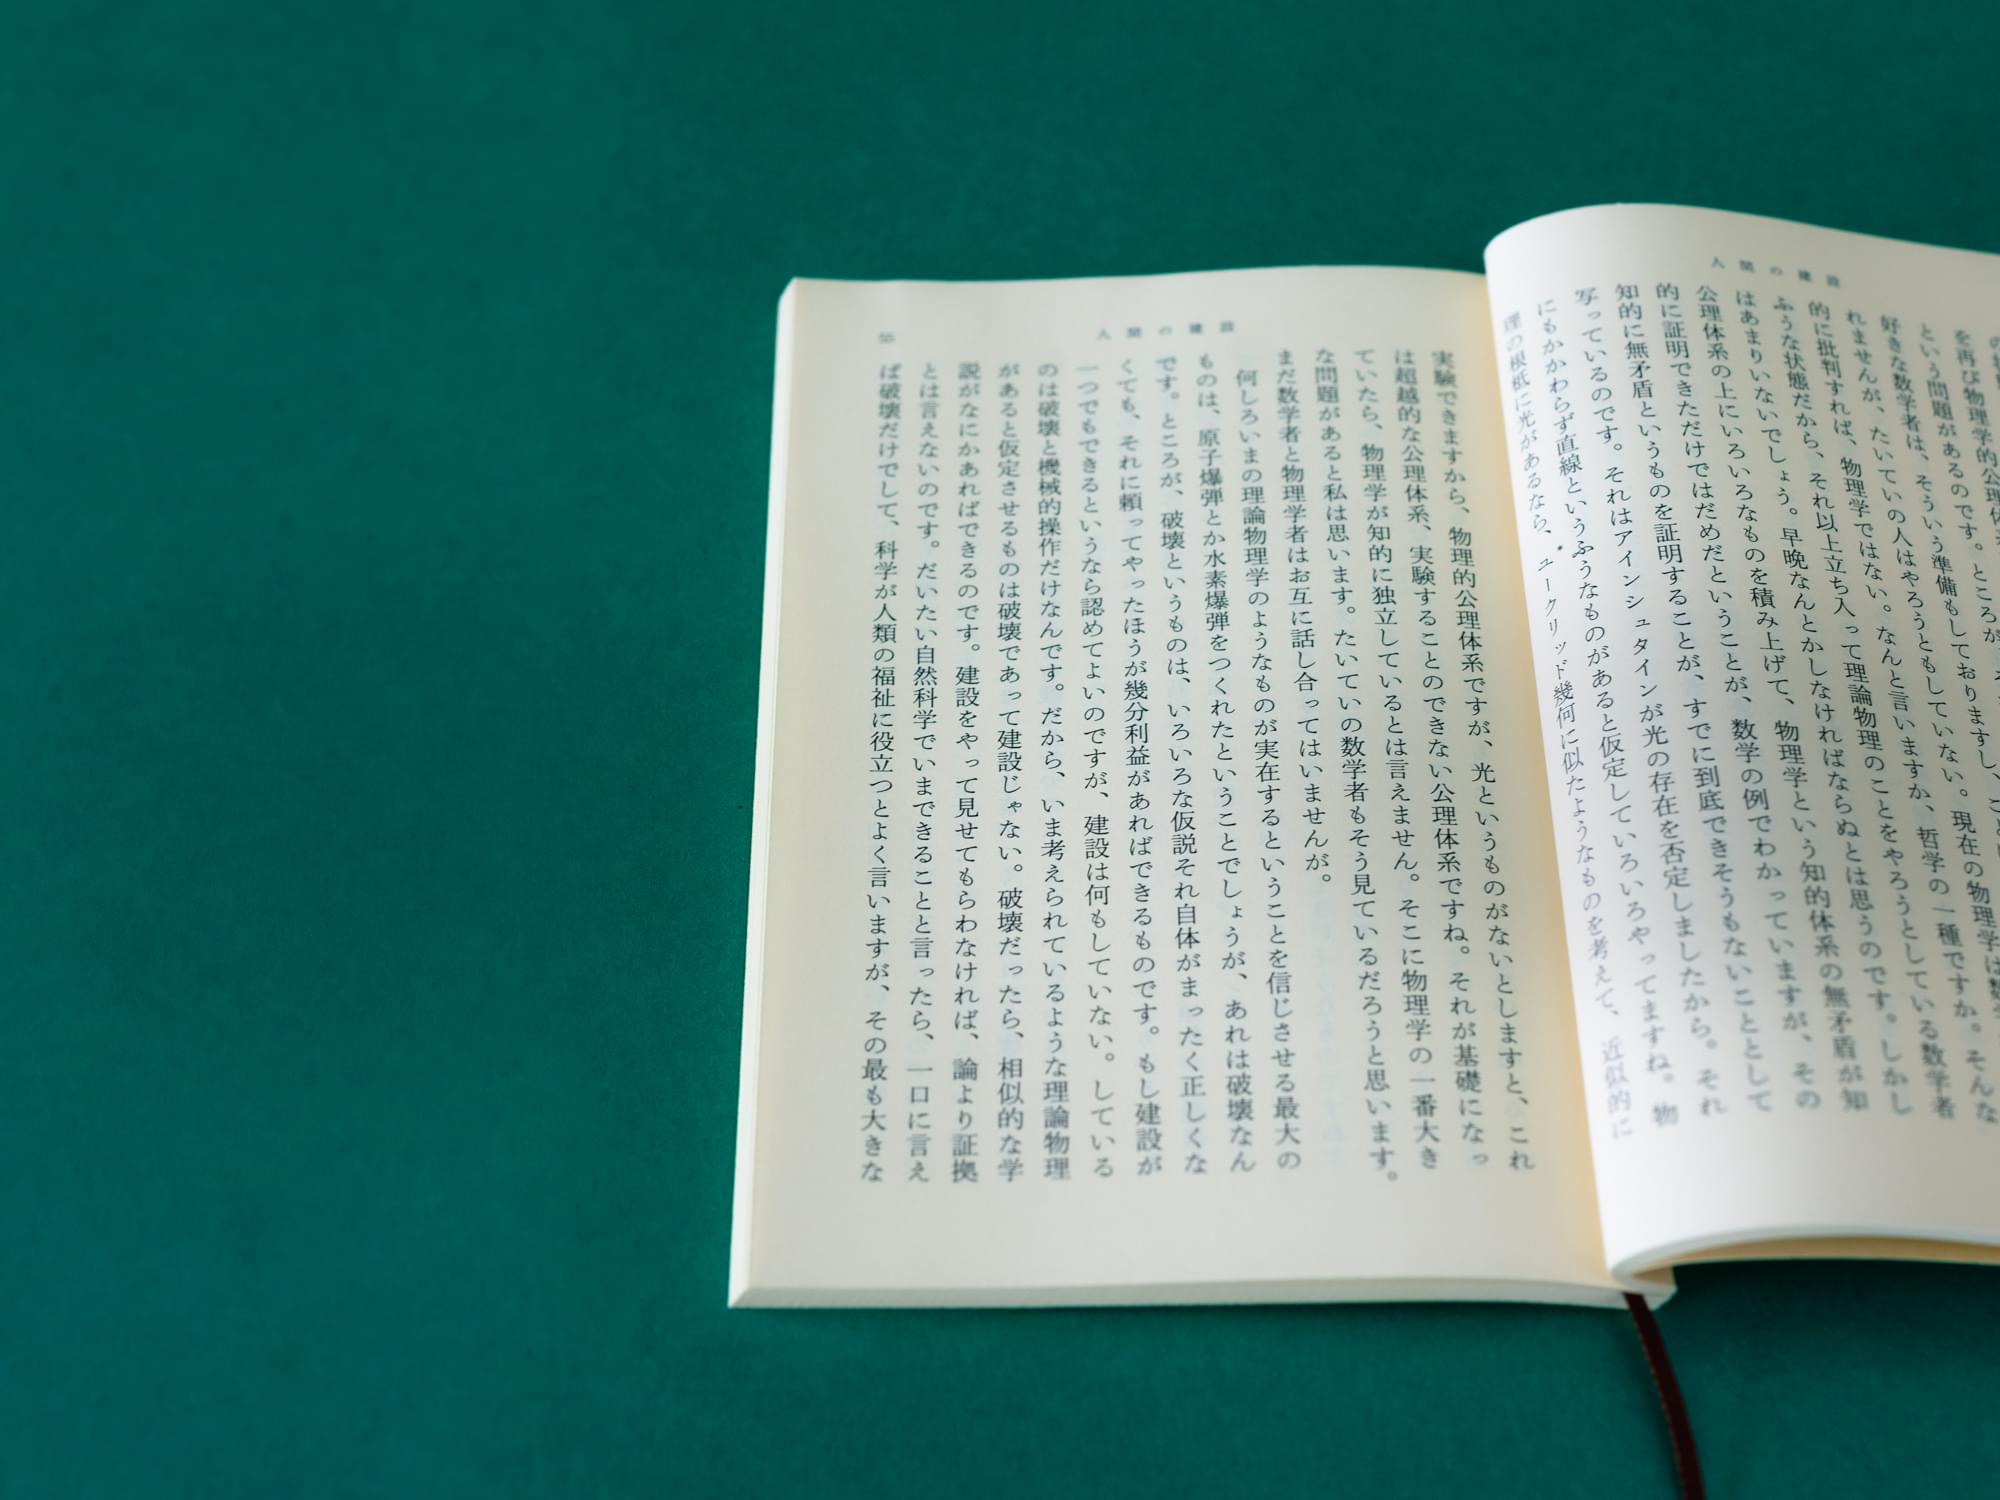 人間の建設
の
を再び物理学的公理
という問題があるのです。ところが
好きな数学者は、そういう準備もしておりますし、こと
れませんが、たいていの人はやろうともしていない。現在の物理学は数学
的に批判すれば、物理学ではない。なんと言いますか、哲学の一種ですか。そんな
ふうな状態だから、それ以上立ち入って理論物理のことをやろうとしている数学者
はあまりいないでしょう。早晩なんとかしなければならぬとは思うのです。しかし
公理体系の上にいろいろなものを積み上げて、物理学という知的体系の無矛盾が知
的に証明できただけではだめだということが、数学の例でわかっていますが、その
知的に無矛盾というものを証明することが、すでに到底できそうもないこととして
写っているのです。それはアインシュタインが光の存在を否定しましたから。それ
にもかかわらず直線というふうなものがあると仮定していろいろやってますね。物
理の根柢に光があるなら、ユークリッド幾何に似たようなものを考えて、近似的に
人間の建設
55
実験できますから、物理的公理体系ですが、光というものがないとしますと、これ
は超越的な公理体系、実験することのできない公理体系ですね。それが基礎になっ
ていたら、物理学が知的に独立しているとは言えません。そこに物理学の一番大き
な問題があると私は思います。たいていの数学者もそう見ているだろうと思います。
まだ数学者と物理学者はお互に話し合ってはいませんが。
何しろいまの理論物理学のようなものが実在するということを信じさせる最大の
ものは、原子爆弾とか水素爆弾をつくれたということでしょうが、あれは破壊なん
です。ところが、破壊というものは、いろいろな仮説それ自体がまったく正しくな
くても、それに頼ってやったほうが幾分利益があればできるものです。もし建設が
一つでもできるというなら認めてよいのですが、建設は何もしていない。している
のは破壊と機械的操作だけなんです。だから、いま考えられているような理論物理
があると仮定させるものは破壊であって建設じゃない。破壊だったら、相似的な学
説がなにかあればできるのです。建設をやって見せてもらわなければ、論より証拠
とは言えないのです。だいたい自然科学でいまできることと言ったら、一口に言え
ば破壊だけでして、科学が人類の福祉に役立つとよく言いますが、その最も大きな